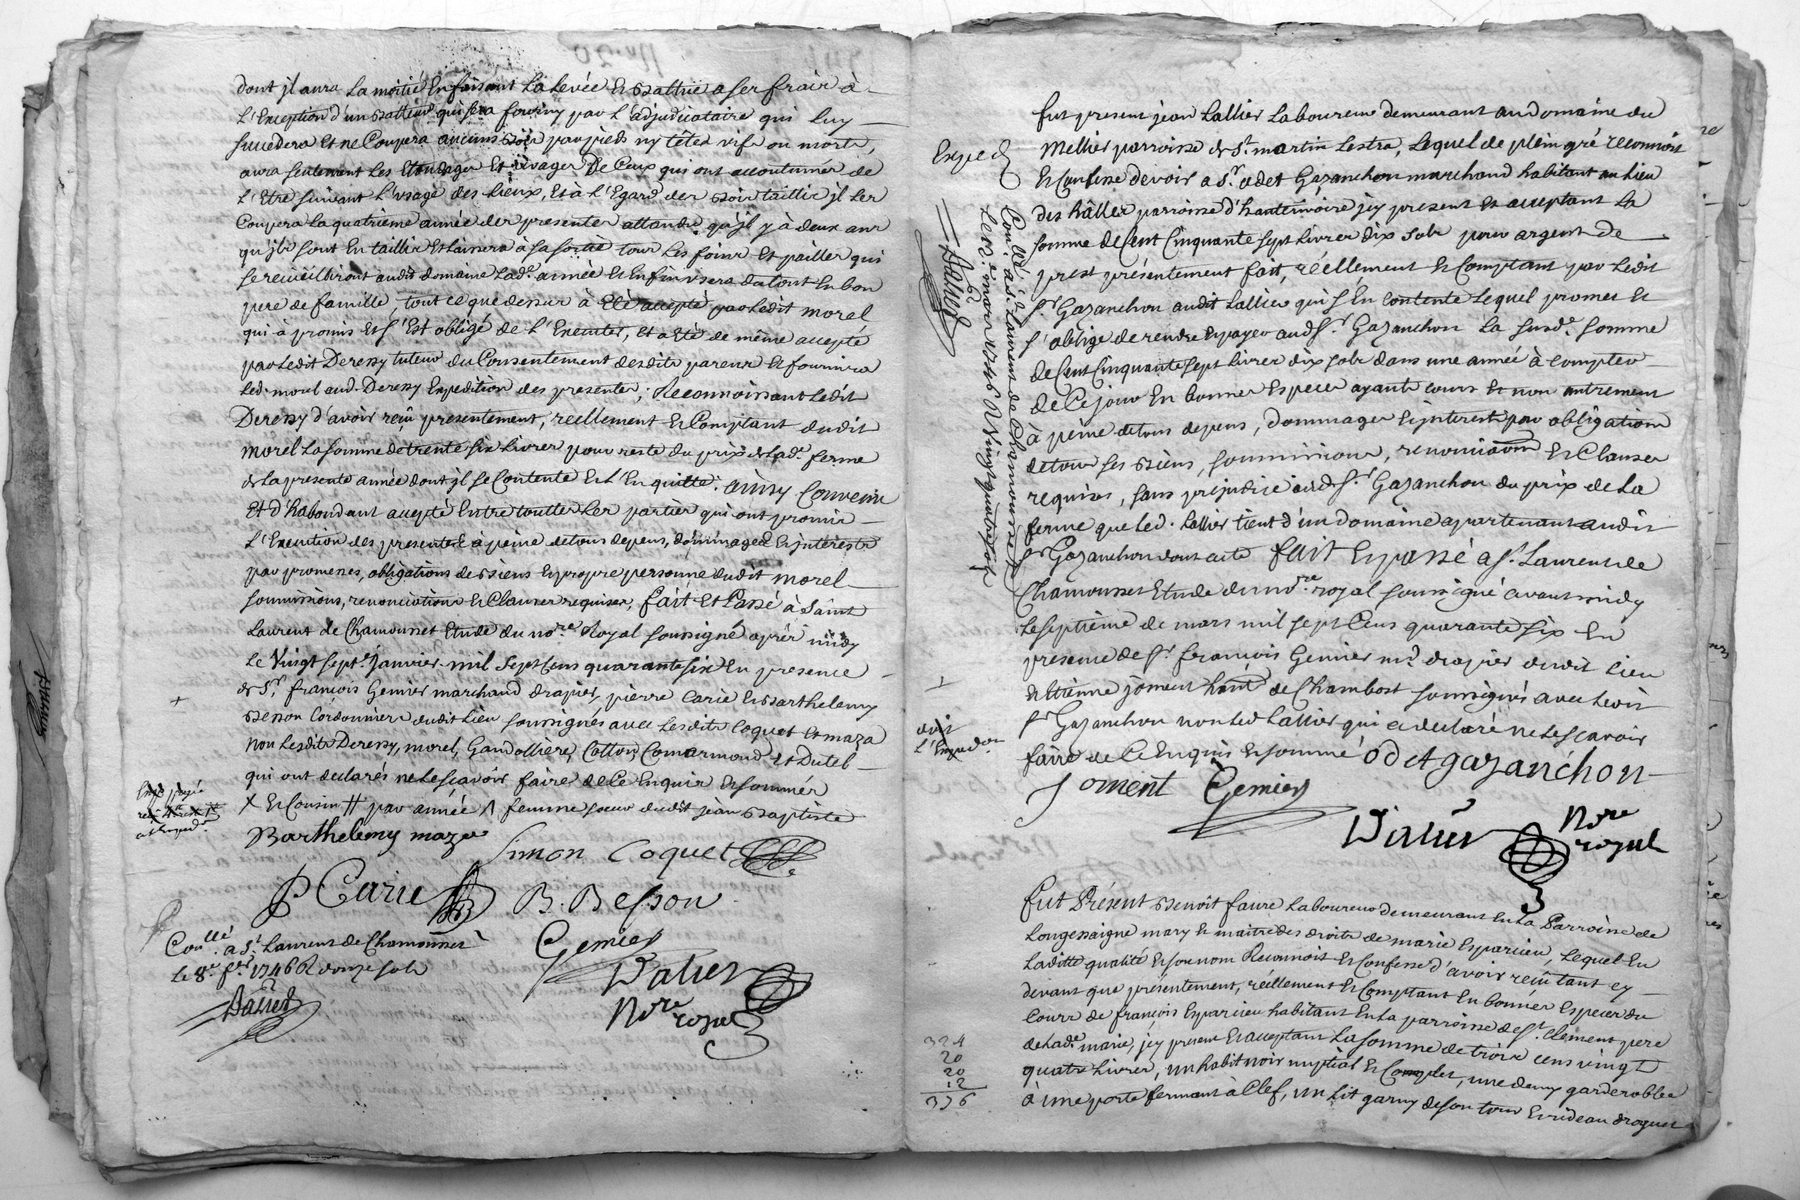 dont jl aura la moitié En faisant la levée Et Battüe a ses frais à
l'Exception d'un Batteur qui sera fourny par l'adjudicataire qui luy
succedera Et ne Coupera aucuns Bois par pieds ny têtes vifs ou morts,
aura seulement les Elaudages Et Ewages De Ceux qui ont accoutumés de
l'Etre suivant l'usage des lieux, Et à l'Egard des Bois taillis jl les
Coupera la quatrieme année des presentes attandu qu'jl y à deux ans
qu'jls sont En taillis Et laissera à sa sortie tous les foins Et pailles qui
se recueilliront audit domaine lad.e année Et En fin usera du tout En bon
pere de famille, tout ce que dessus à Eté accepté par ledit morel
qui à promis Et s'Est obligé de l'Executer, Et a Eté de même accepté
par ledit Deressy tuteur du Consentement desdits parens Et fournira
led. morel aud. Deressy Expedition des presentes; Reconnoissant ledit
Deressy d'avoir reçû presentement, réellement Et Comptant dudit
morel la somme de trente six livres pour reste du prix de lad.e ferme
de la presente année dont jl se Contente Et l'En quitte. ainsy Convenu
Et d'habondant accepté Entre touttes les parties qui ont promis
l'Execution des presentes à peine de tous depens, dommages Et jnterests
par promesses, obligations de Biens Et propre personne dudit morel
soumissions, renonciations Et Clauses requises, fait Et Passé à Saint
Laurent de Chamousset Etude du no.re Royal soussigné après midy
le Vingt sept.e janvier mil sept Cens quarante six En presence
de S.r françois Gemier marchand drapier, pierre Carie Et Barthelemy
Besson Cordonnier dudit lieu, soussignés avec lesdits Coquet et maza
non lesdits Deressy, morel, Gandolliere, Cotton, Comarmond Et Dutel
qui ont declarés ne le sçavoir faire de Ce Enquis Et sommés
X Et Cousin # par année /\ femme soeur dudit jean Baptiste
Barthelemy maza
Simon Coquet
P Carie
B. Besson
Gemier
Con.llé a S.t Laurent de Chamousset
le 8.e fev.r 1746 R douze sols
Valier
No.re royal
Exped.
Con.llé à S.t Laurent de Chamousset
le 12.e mars 1746 R Vingt quatre sols
fut present jean Lallier Laboureur demeurant au domaine du
Mellier parroisse de S.t martin Lestra, Lequel de plein gré reconnoit
Et Confesse devoir a S.r odet Gazanchon marchand habitant au lieu
des hâlles parroisse d'hauterivoire jcy present et acceptant la
somme de Cent Cinquante sept livres dix sols pour argent de
prest présentement fait, réellement Et Comptant par ledit
S.r Gazanchon audit Lallier qui s'En contente lequel promet Et
s'oblige de rendre Et payer aud. S.r Gazanchon la susd.e somme
de Cent Cinquante sept livres dix sols dans une année à compter
de Ce jour En bonnes Especes ayants cours Et non autrement
à peine de tous depens, dommages Et jnterests par obligation
de tous ses Biens, soumissions, renonciations Et Clauses
requises, sans préjudice aud. S.r Gazanchon du prix de la
ferme que led. Lallier tient d'un domaine apartenant audit
S.r Gazanchon dont acte fait Et passé a S.t Laurent de
Chamousset Etude du no.re royal soussigné avant midy
le septième de mars mil sept Cens quarante six En
presence de S.r françois Gemier m.d drapier dudit lieu
Et Etienne joment de Chambost soussignés avec ledit
S.r Gazanchon non led Lallier qui a declaré ne le sçavoir
faire de Ce Enquis Et sommé odet gazanchon
joment Gemier
Valier No.re royal
Fut Présent Benoit faure Laboureur demeurant En la Parroisse de
Longessaigne mary Et maître des droits de marie Esparcieu, Lequel En
laditte qualité Et son nom Reconnoit Et Confesse d'avoir reçû tant cy
devant que présentement, réellement Et Comptant En bonnes Especes du
Cours de françois Esparcieu habitant En la parroisse de S.t Clement pere
de lad.e marie, jcy present Et acceptant la somme de trois cens vingt
quatre livres, un habit noir nuptial Et Complet, une demy garderobbe
à une porte fermant à Clef, un lit garny de son tour Et rideau droguet
324
20
20
12
376